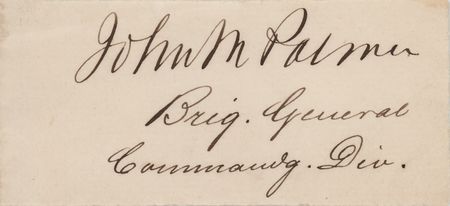 John M Palmer
Brig. General
Commandg. Div.